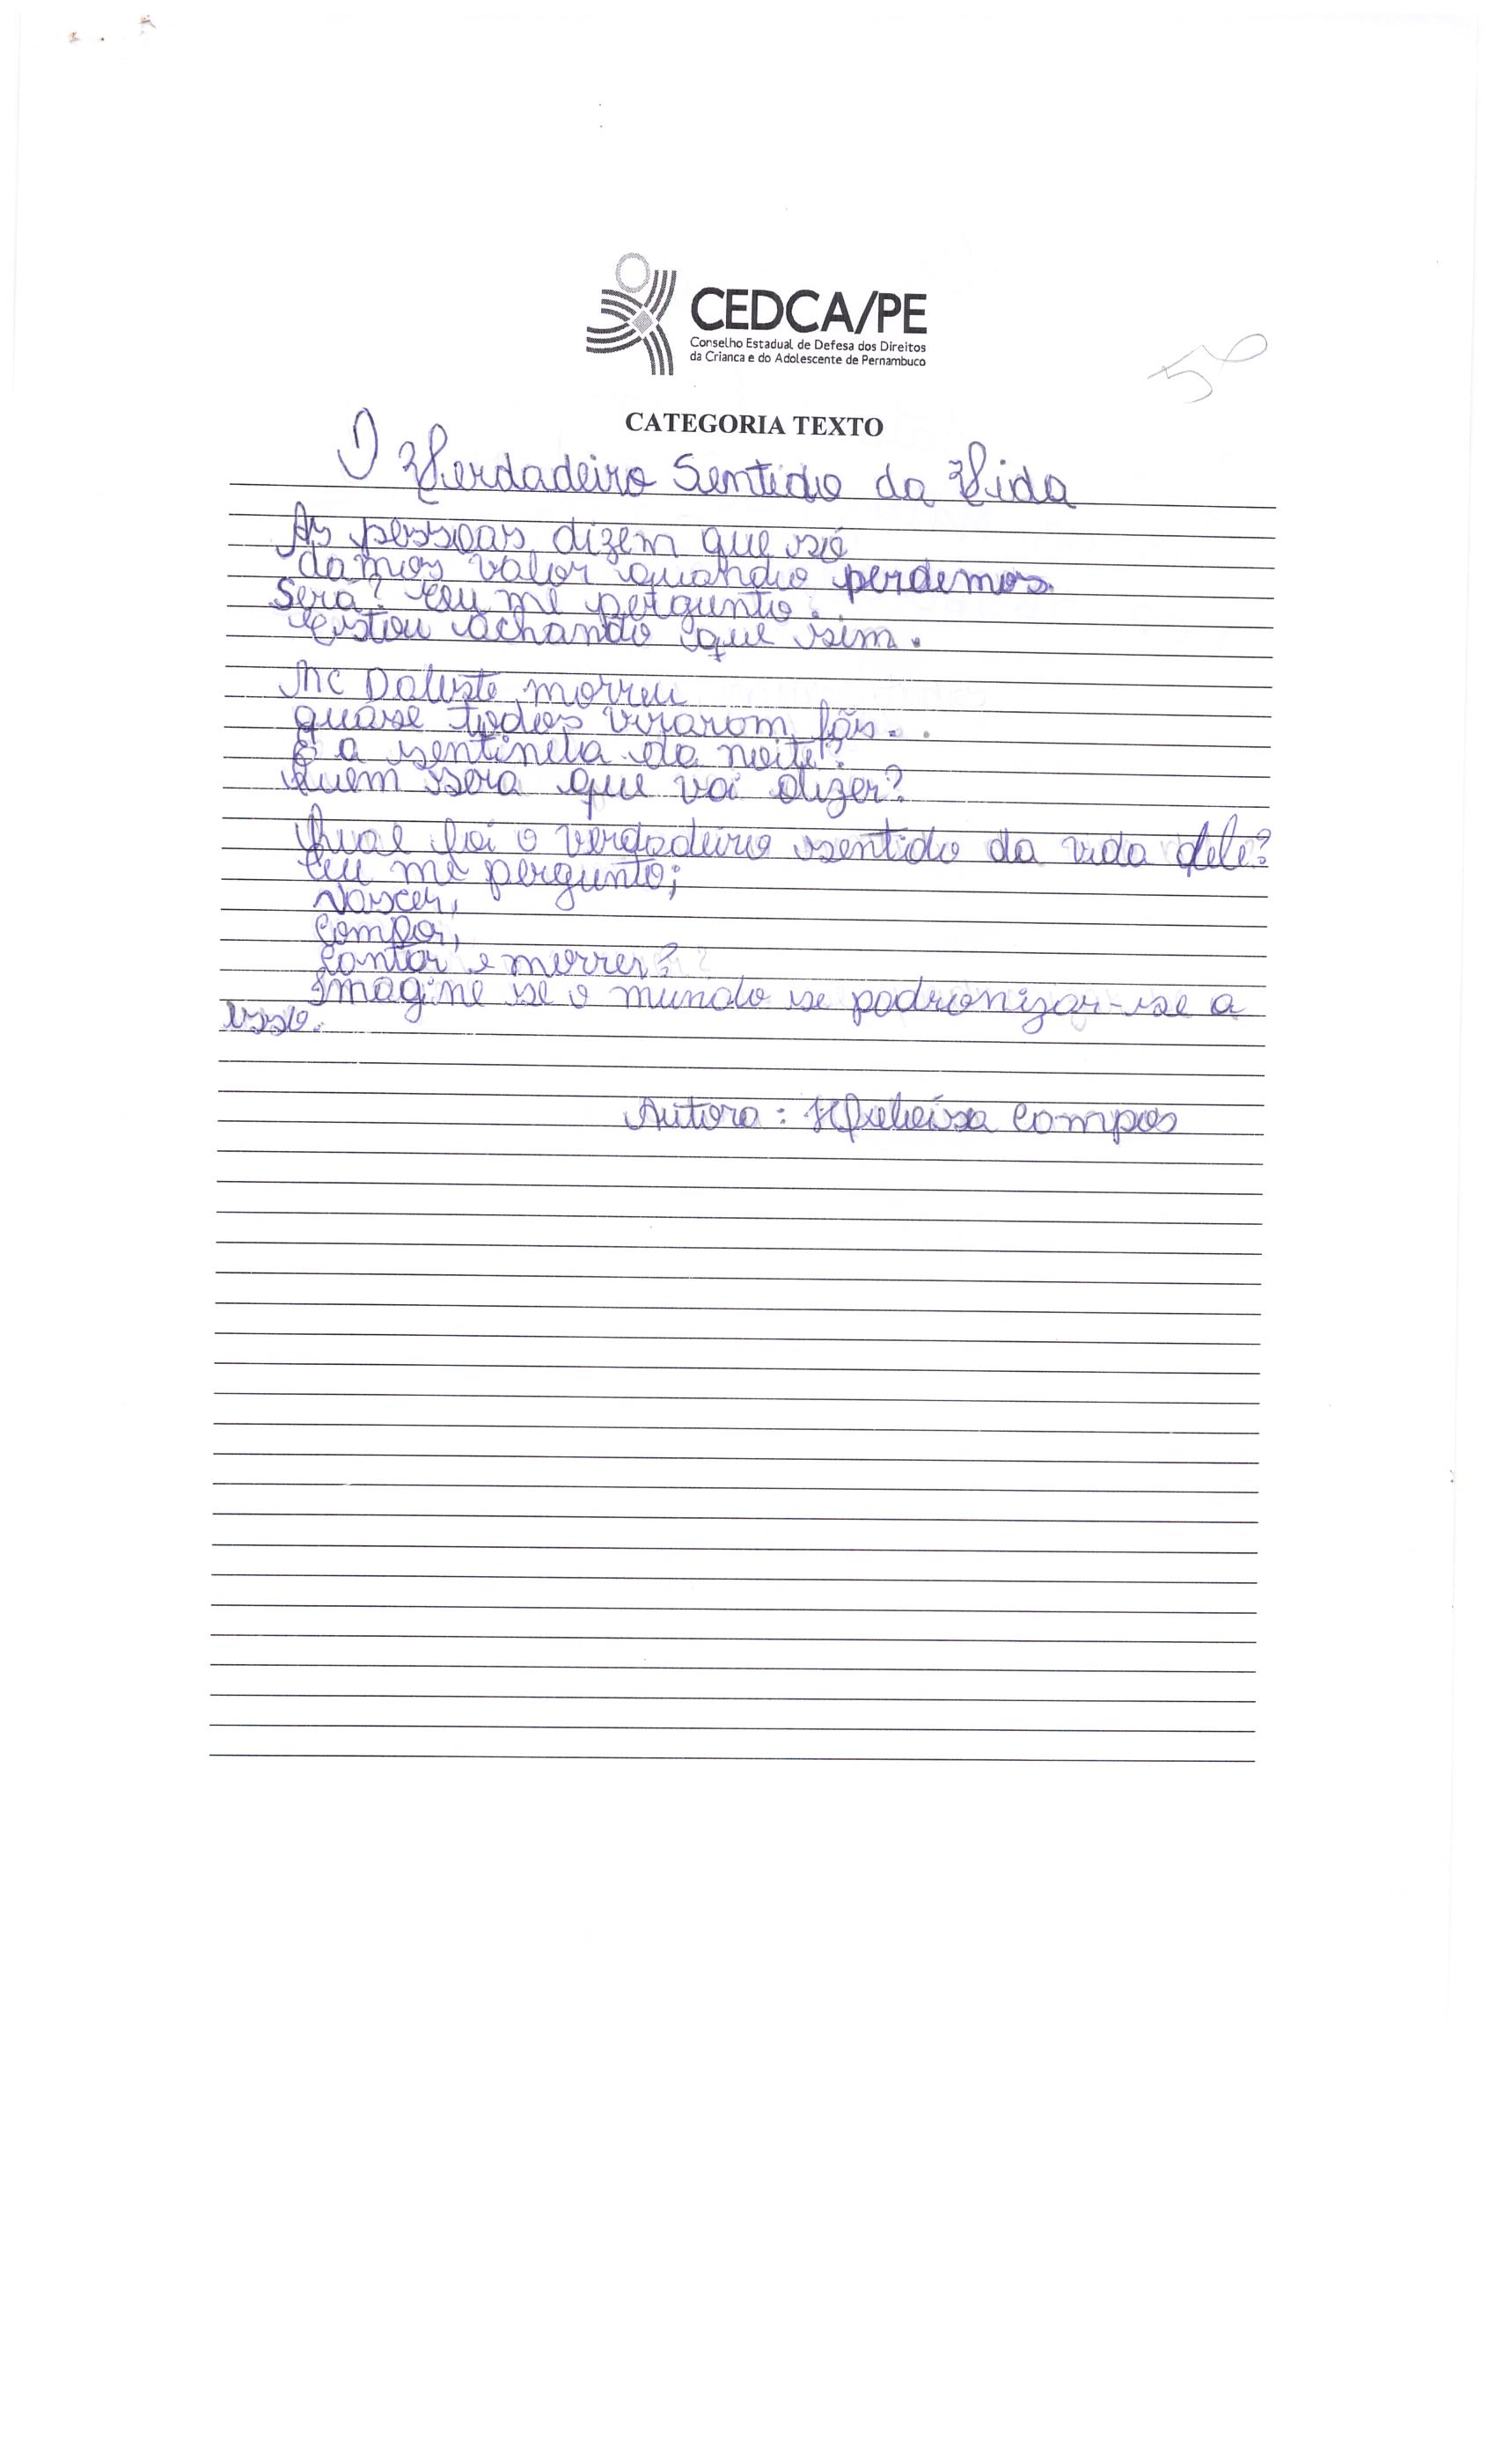 CEDCA/PE
Conselho Estadual de Defesa dos Direitos
da Crianca e do Adolescente de Pernambuco
5º
CATEGORIA TEXTO
O Verdadeiro Sentido da Vida
As pessoas dizem que só
damos valor quando perdemos.
Será? Eu me pergunto.
Estou achando que sim.
Mc Daleste morreu
quase todos viraram fãs.
E a sentinela da noite?
Quem sera que vai dizer?
Qual foi o verdadeiro sentido da vida dele?
Eu me pergunto;
Nascer,
Compor,
Cantar e morrer?
Imagine se o mundo se padronizar-se a
isso.
Autora: Campos